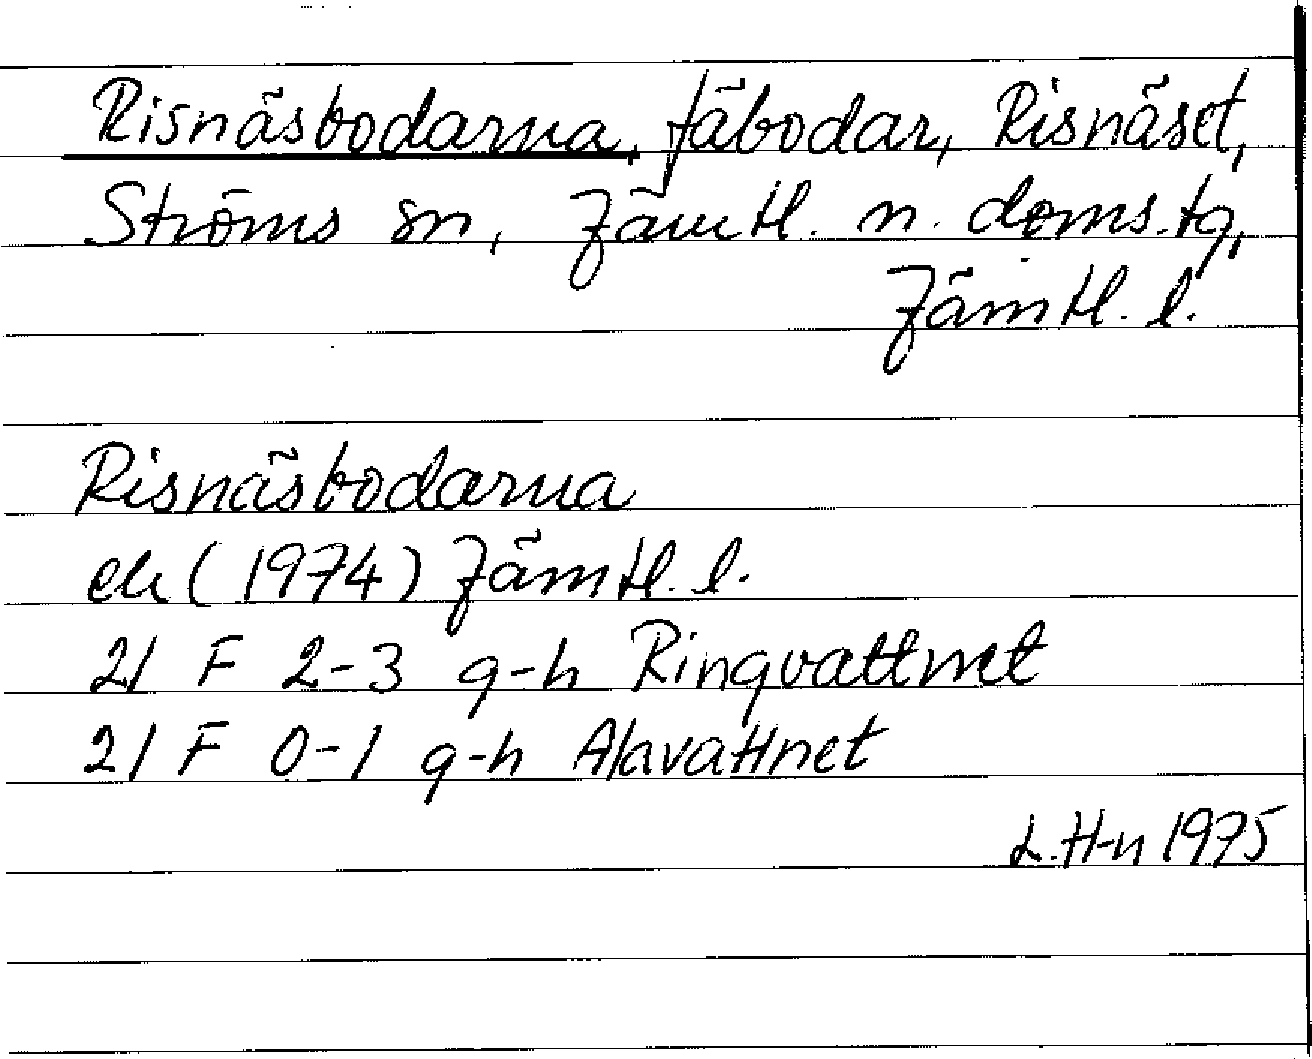 Risnäsbodarna, fäbodar, Risnäset,
Ströms sn, Jämtl. n. doms.tg,
Jämtl. l.
Risnäsbodarna
ek (1974) Jämtl. l.
21 F 2-3 g-h Ringvattnet
21 F 0-1 g-h Alavattnet
L. H-n 1975